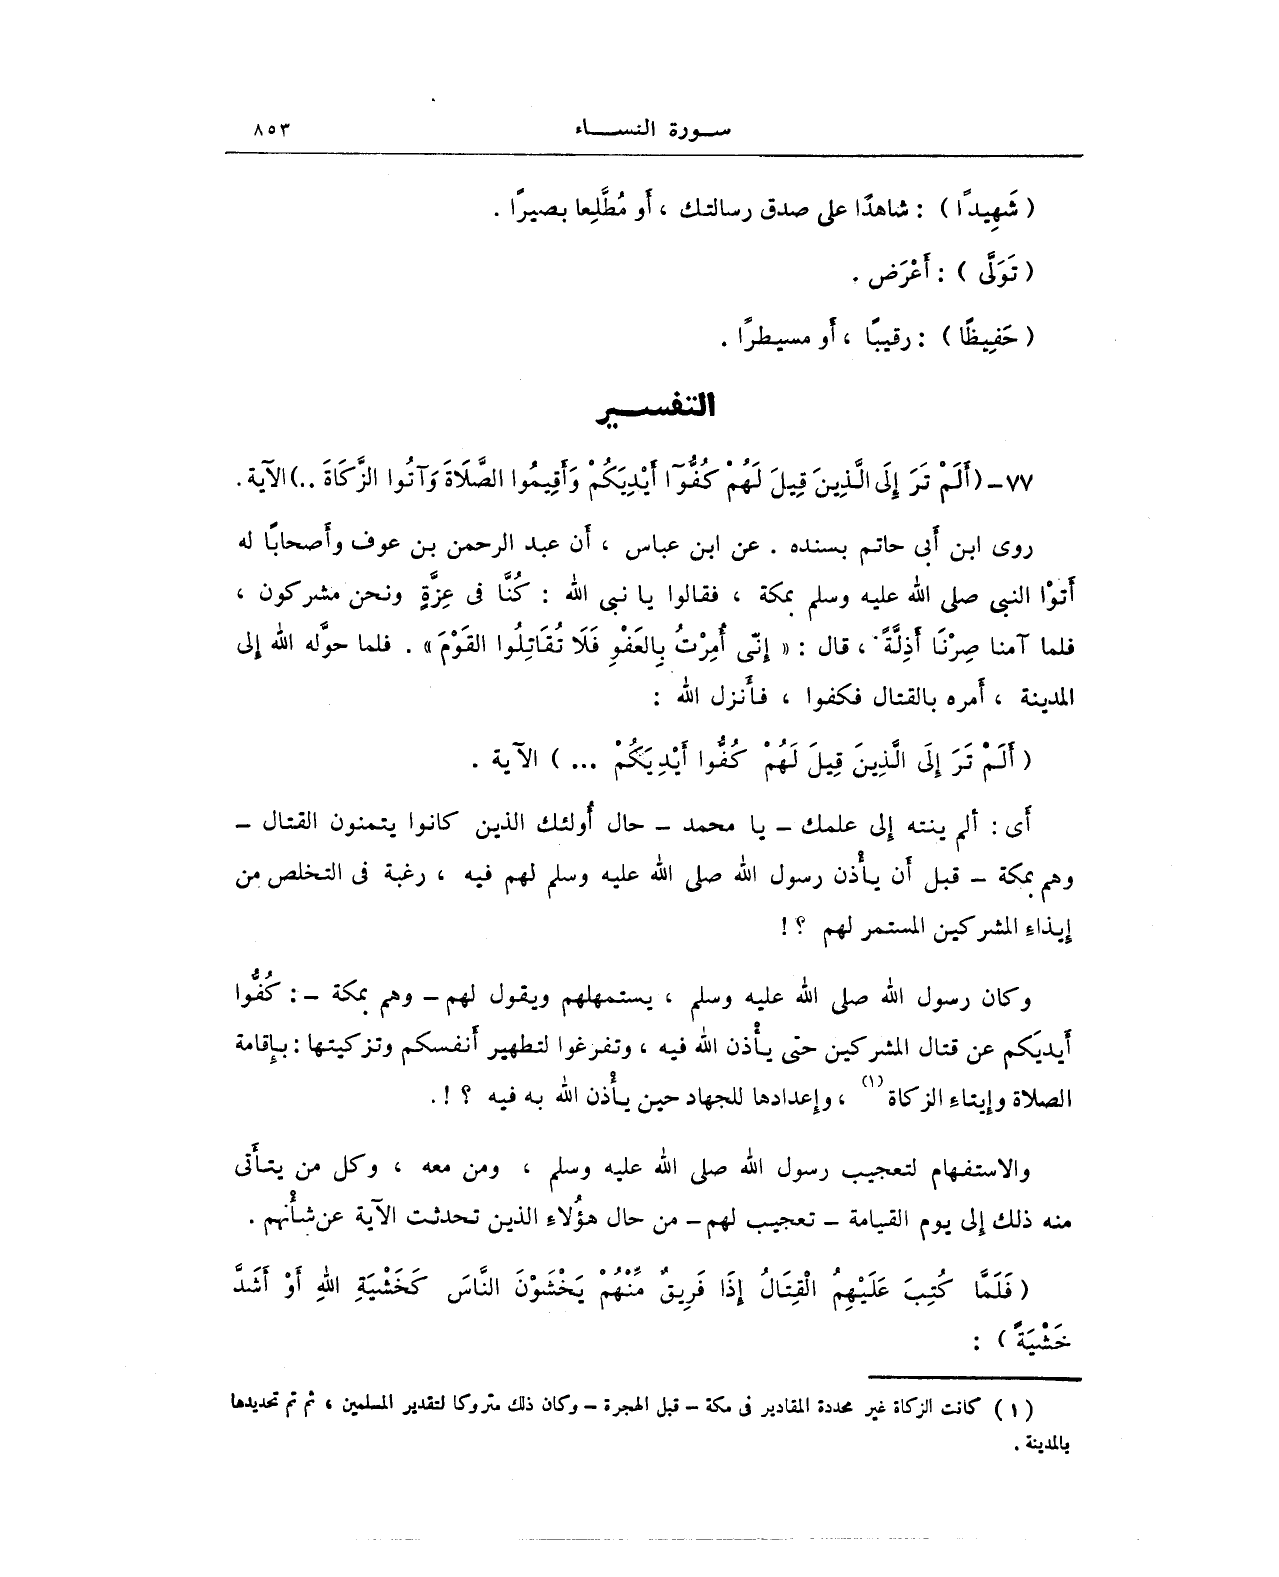 سورة النساء ٨٥٣
( شَهِيدًا ) : شاهدًا على صدق رسالتك ، أو مُطَّلِعا بصيرًا .
( تَوَلَّى ) : أَعْرَض .
( حَفِيظًا ) : رقيبًا ، أو مسيطرًا .
التفسير
٧٧ – ( أَلَمْ تَرَ إِلَى الَّذِينَ قِيلَ لَهُمْ كُفُّوٓا أَيْدِيَكُمْ وَأَقِيمُوا الصَّلَاةَ وَآتُوا الزَّكَاةَ .. ) الآية .
روى ابن أبى حاتم بسنده . عن ابن عباس ، أن عبد الرحمن بن عوف وأصحابًا له
أَتوْا النبى صلى الله عليه وسلم بمكة ، فقالوا يا نبى الله : كُنَّا فى عِزَّةٍ ونحن مشركون ،
فلما آمنا صِرْنَا أَذِلَّةً ، قال : « إِنِّى أُمِرْتُ بِالعَفْوِ فَلَا تُقَاتِلُوا القَوْمَ » . فلما حوَّله الله إلى
المدينة ، أمره بالقتال فكفوا ، فأنزل الله :
( أَلَمْ تَرَ إِلَى الَّذِينَ قِيلَ لَهُمْ كُفُّوا أَيْدِيَكُمْ ... ) الآية .
أى : ألم ينته إلى علمك – يا محمد – حال أُولئك الذين كانوا يتمنون القتال –
وهم بمكة – قبل أن يأْذن رسول الله صلى الله عليه وسلم لهم فيه ، رغبة فى التخلص من
إيذاء المشركين المستمر لهم ؟ !
وكان رسول الله صلى الله عليه وسلم ، يستمهلهم ويقول لهم – وهم بمكة – : كُفُّوا
أيديَكم عن قتال المشركين حتى يأْذن الله فيه ، وتفرغوا لتطهير أنفسكم وتزكيتها : بإقامة
الصلاة وإيتاء الزكاة (١) ، وإعدادها للجهاد حين يأْذن الله به فيه ؟ ! .
والاستفهام لتعجيب رسول الله صلى الله عليه وسلم ، ومن معه ، وكل من يتأَتى
منه ذلك إلى يوم القيامة – تعجيب لهم – من حال هؤُلاء الذين تحدثت الآية عن شأْنهم .
( فَلَمَّا كُتِبَ عَلَيْهِمُ الْقِتَالُ إِذَا فَرِيقٌ مِّنْهُمْ يَخْشَوْنَ النَّاسَ كَخَشْيَةِ اللهِ أَوْ أَشَدَّ
خَشْيَةً ) :
( ١ ) كانت الزكاة غير محددة المقادير فى مكة – قبل الهجرة – وكان ذلك متروكا لتقدير المسلمين ، ثم تم تحديدها
بالمدينة .